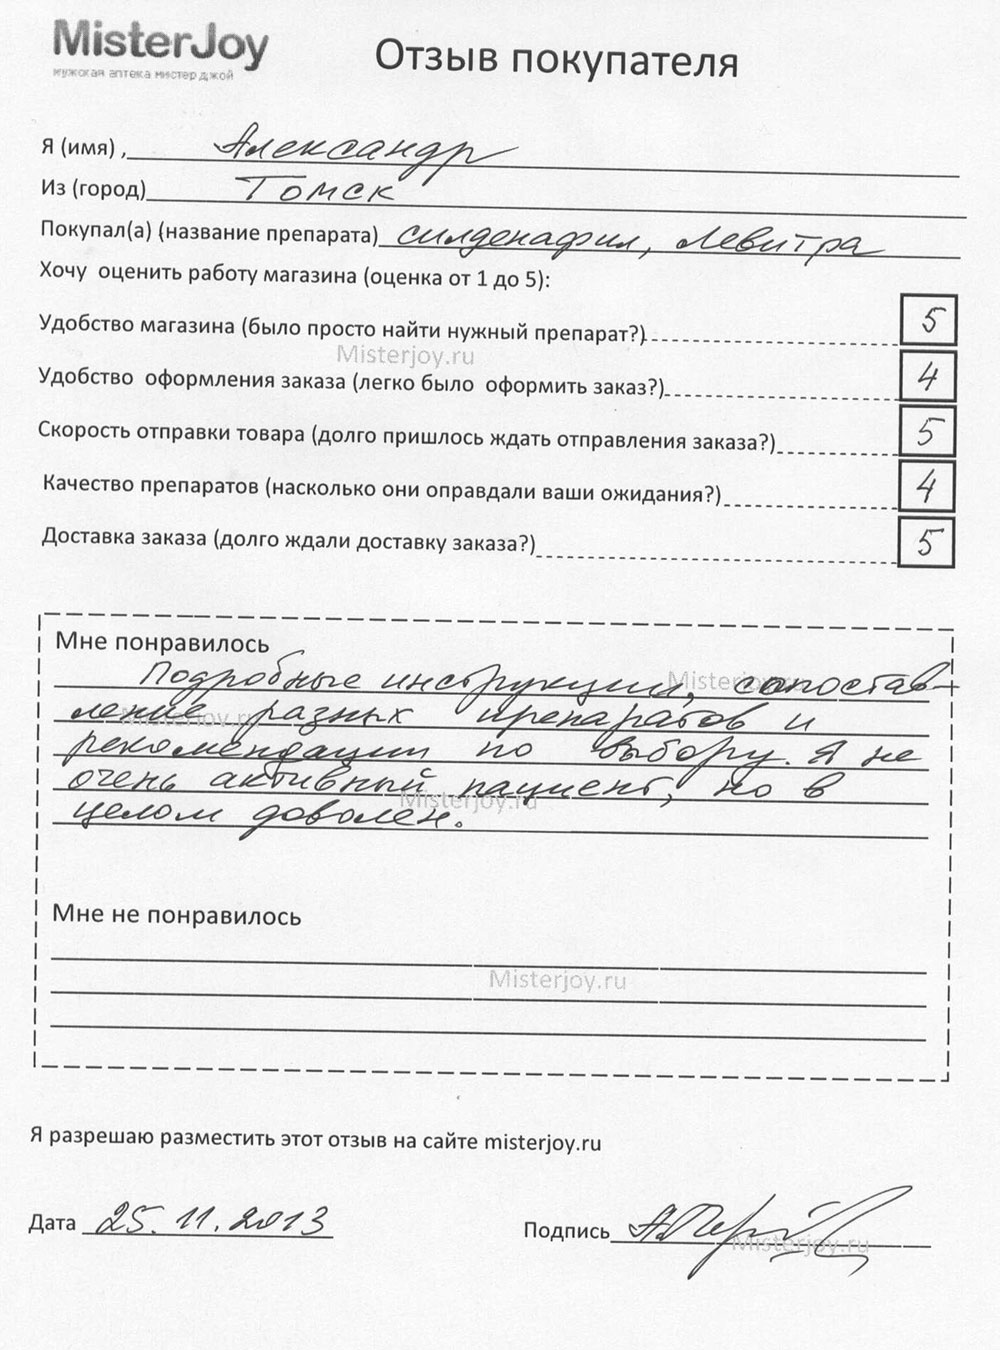 MisterJoy
мужская аптека мистер джой
Отзыв покупателя
Я (имя) , Александр
Из (город) Томск
Покупал(а) (название препарата) силденафил, Левитра
Хочу оценить работу магазина (оценка от 1 до 5):
Удобство магазина (было просто найти нужный препарат?) 5
Misterjoy.ru
Удобство оформления заказа (легко было оформить заказ?) 4
Скорость отправки товара (долго пришлось ждать отправления заказа?) 5
Качество препаратов (насколько они оправдали ваши ожидания?) 4
Доставка заказа (долго ждали доставку заказа?) 5
Мне понравилось
Подробные инструкции, сопостав-
Misterjoy.ru
ление разных препаратов и
Misterjoy.ru
рекомендации по выбору. Я не
очень активный пациент, но в
Misterjoy.ru
целом доволен.
Мне не понравилось
Misterjoy.ru
Я разрешаю разместить этот отзыв на сайте misterjoy.ru
Дата 25.11.2013
Подпись
Misterjoy.ru